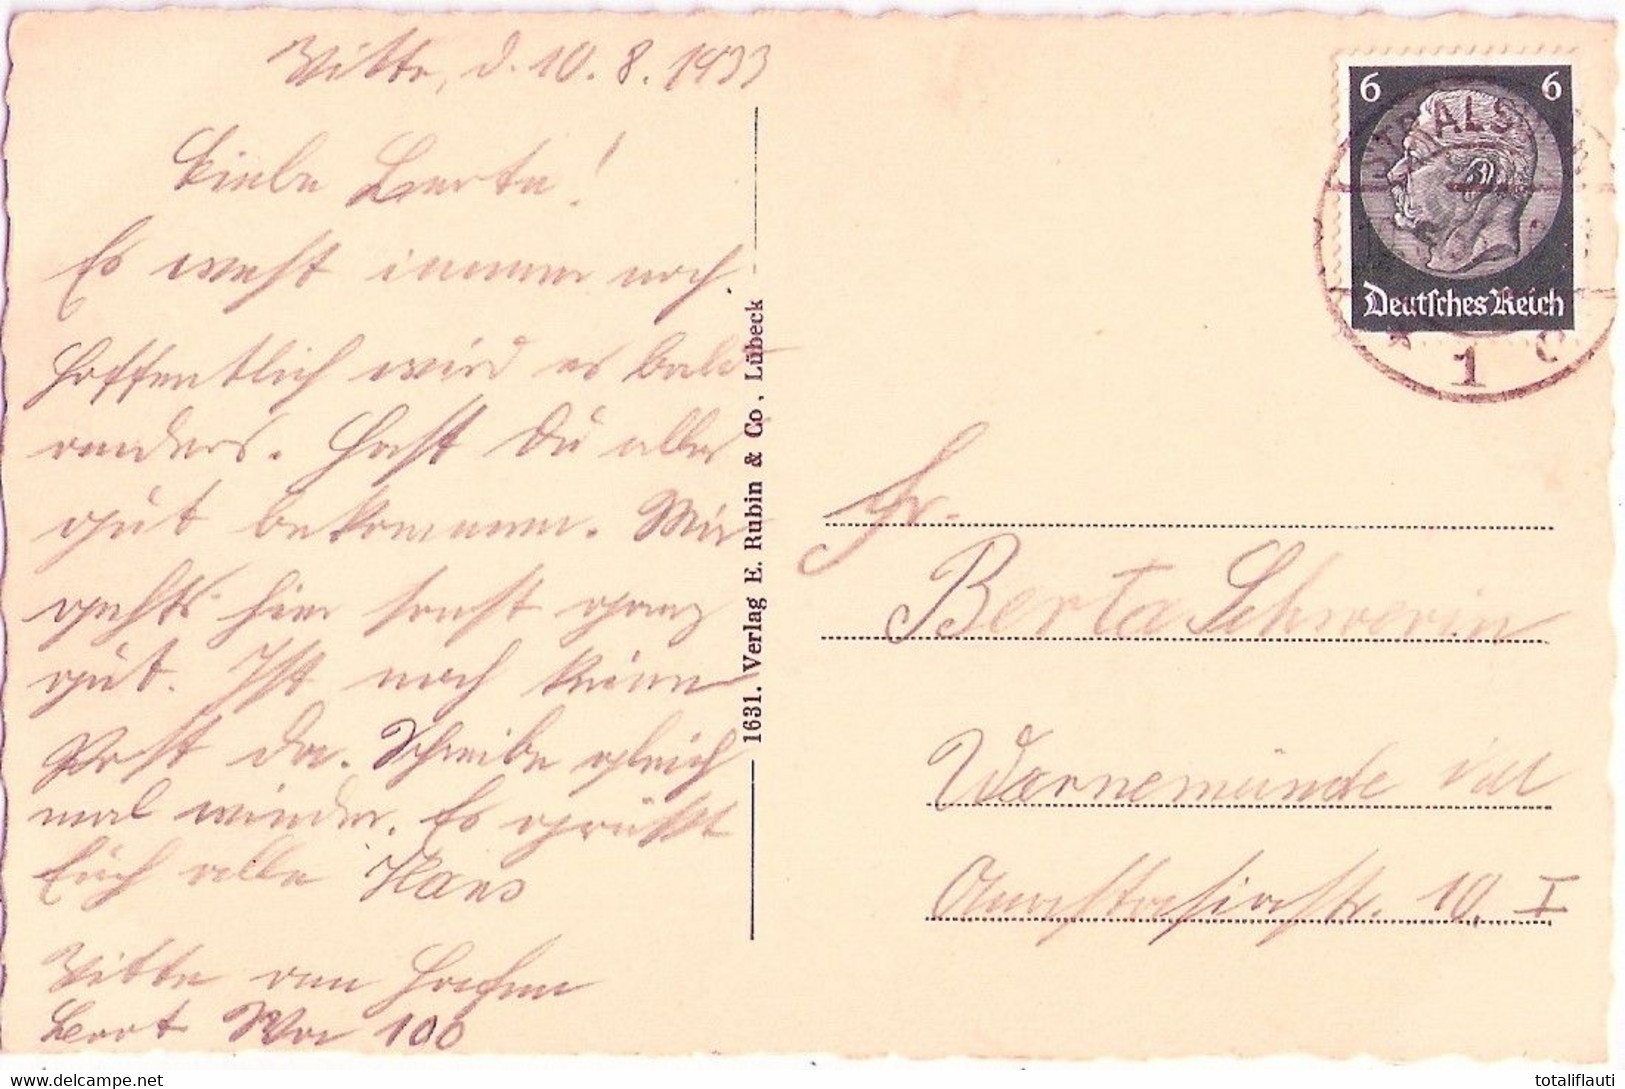 Vitte, d. 10. 8. 1933
Liebe Berta!
Es weht immer noch.
Hoffentlich wird es bald
anders. Hast Du alles
gut bekommen. Mir
gehts hier sonst ganz
gut. Ist noch keine
Post da. Schreibe gleich
mal wieder. Es grüßt
Euch alle Hans
Vitte am Hafen
Boot Wa 100
1631. Verlag E. Rubin & Co, Lübeck
6 6
Deutsches Reich
1
Fr.
Berta Schwerin
Warnemünde
Anastasiastr. 10. I
www.delcampe.net
totaliflauti